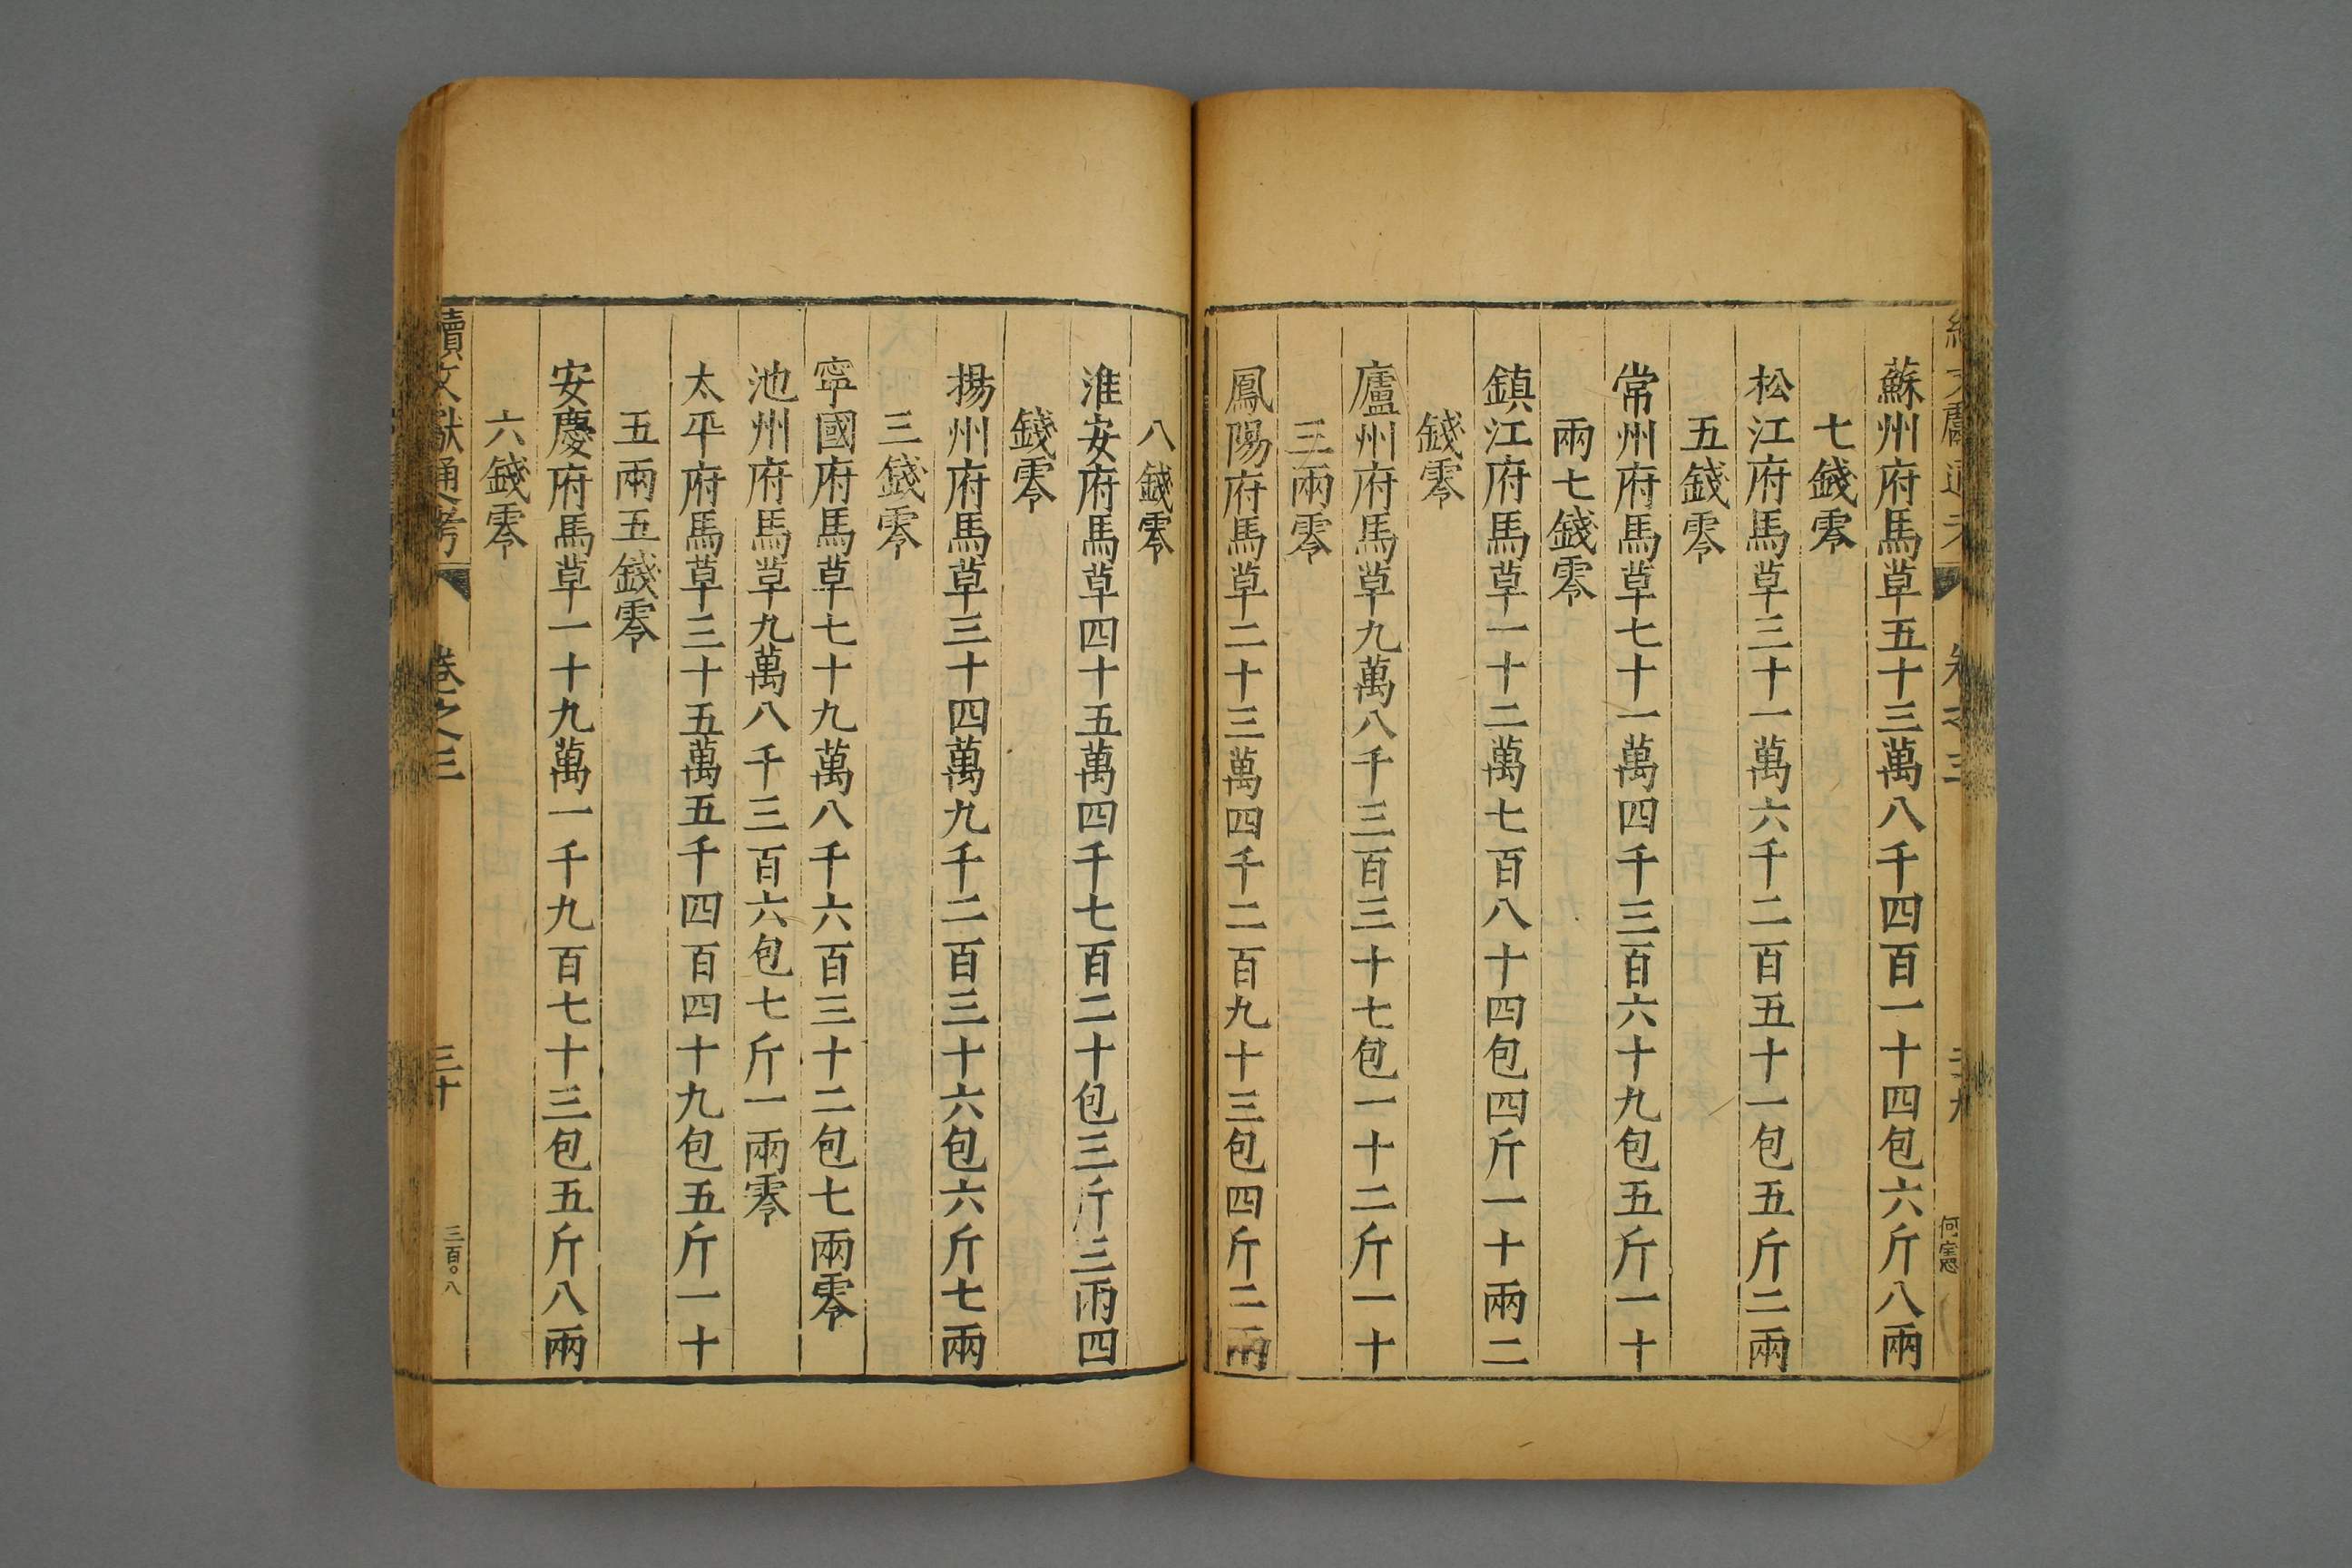 蘇州府馬草五十三萬八千四百一十四包六斤八兩
七錢零
松江府馬草三十一萬六千二百五十一包五斤二兩
五錢零
常州府馬草七十一萬四千三百六十九包五斤一十
兩七錢零
鎮江府馬草一十二萬七百八十四包四斤一十兩二
錢零
廬州府馬草九萬八千三百三十七包一十二斤一十
三兩零
鳳陽府馬草二十三萬四千二百九十三包四斤二兩
八錢零
淮安府馬草四十五萬四千七百二十包三斤三兩四
錢零
揚州府馬草三十四萬九千二百三十六包六斤七兩
三錢零
寧國府馬草七十九萬八千六百三十二包七兩零
池州府馬草九萬八千三百六包七斤一兩零
太平府馬草三十五萬五千四百四十九包五斤一十
五兩五錢零
安慶府馬草一十九萬一千九百七十三包五斤八兩
六錢零
續文獻通考 卷之三 三十 三百〇八